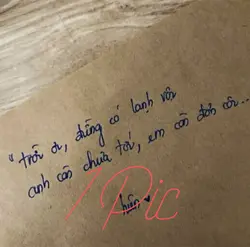 "trời ơi, đừng có lạnh vội
anh còn chưa tới, em còn đơn côi...
hiên ♥
1 Pic